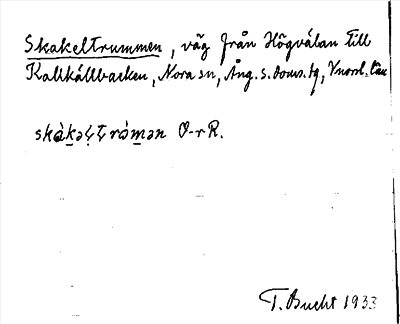 Skakeltrummen, väg från Högvålan till
Kallkällbacken, Nora sn, Ång. s. doms. tg, Vnorrl. län
O-r R.
T. Bucht 1933